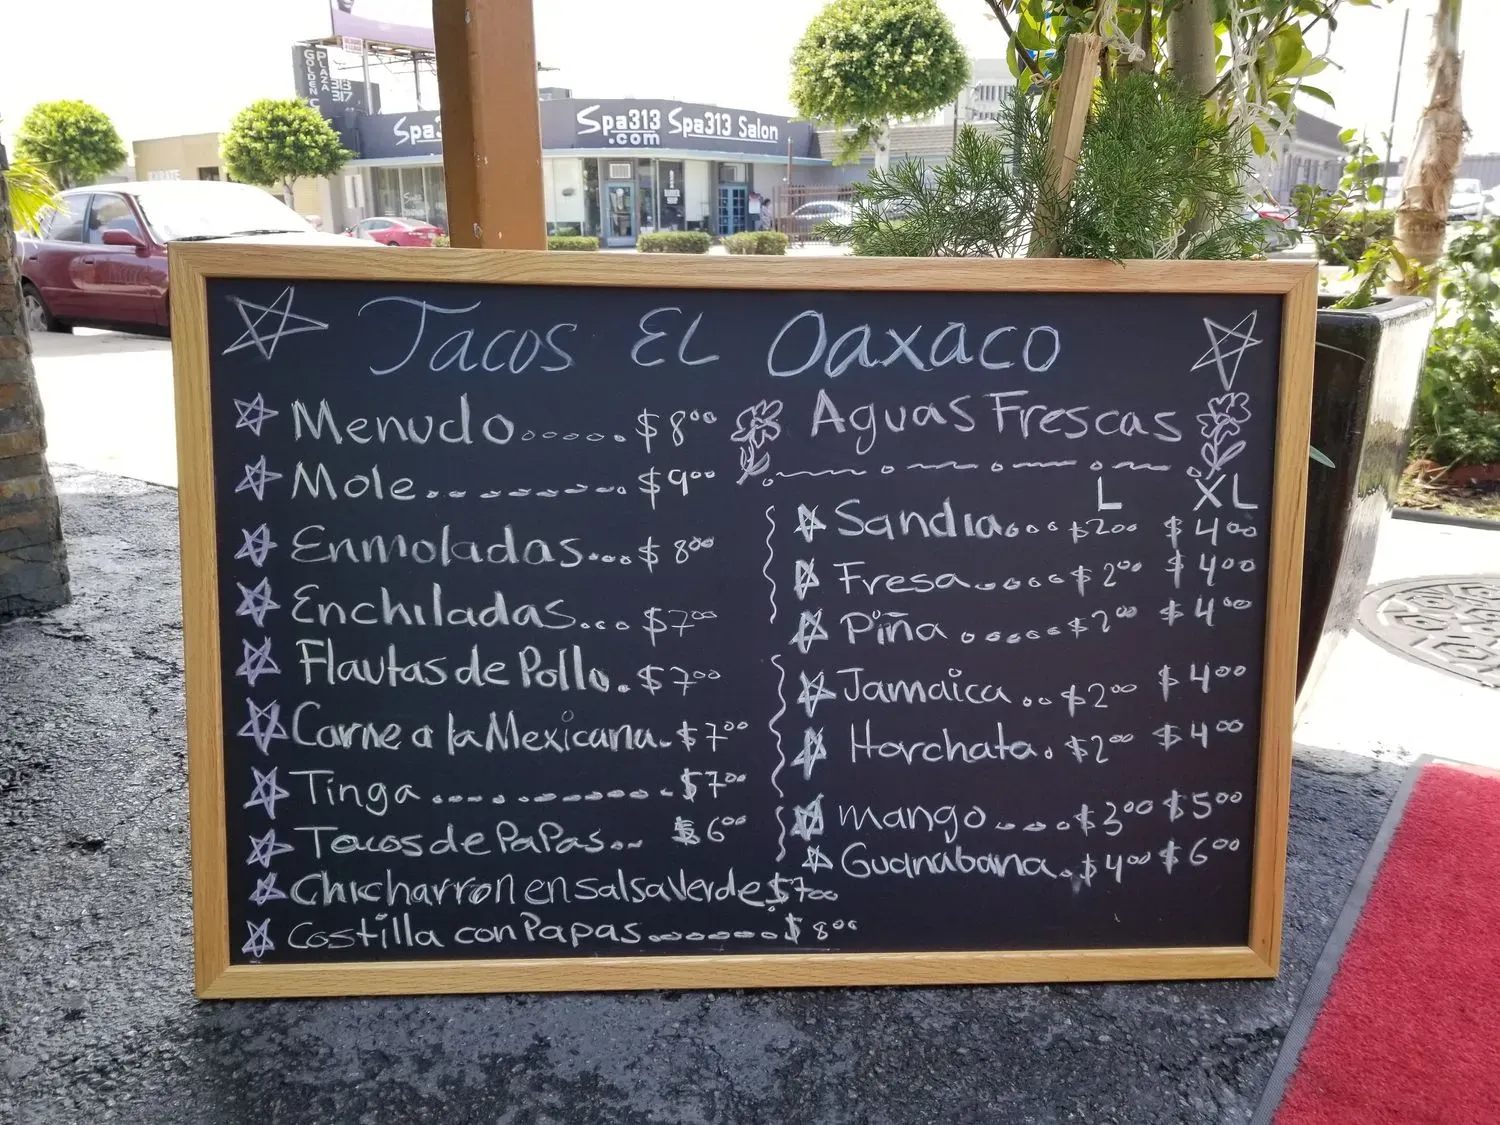 GOLDEN
PLAZA
313
317
Spa3
Spa313
.com
Spa313 Salon
KARATE
Tacos EL Oaxaco
Menudo.......$8.00
Mole.........$9.00
Enmoladas....$8.00
Enchiladas....$7.00
Flautas de Pollo.$7.00
Carne a la Mexicana.$7.00
Tinga...........$7.00
Tacos de PaPas... $6.00
Chicharron en salsa Verde $7.00
Costilla con Papas.......$8.00
Aguas Frescas
L XL
Sandia....$2.00 $4.00
Fresa.....$2.00 $4.00
Piña......$2.00 $4.00
Jamaica..$2.00 $4.00
Horchata.$2.00 $4.00
mango....$3.00 $5.00
Guanabana.$4.00 $6.00